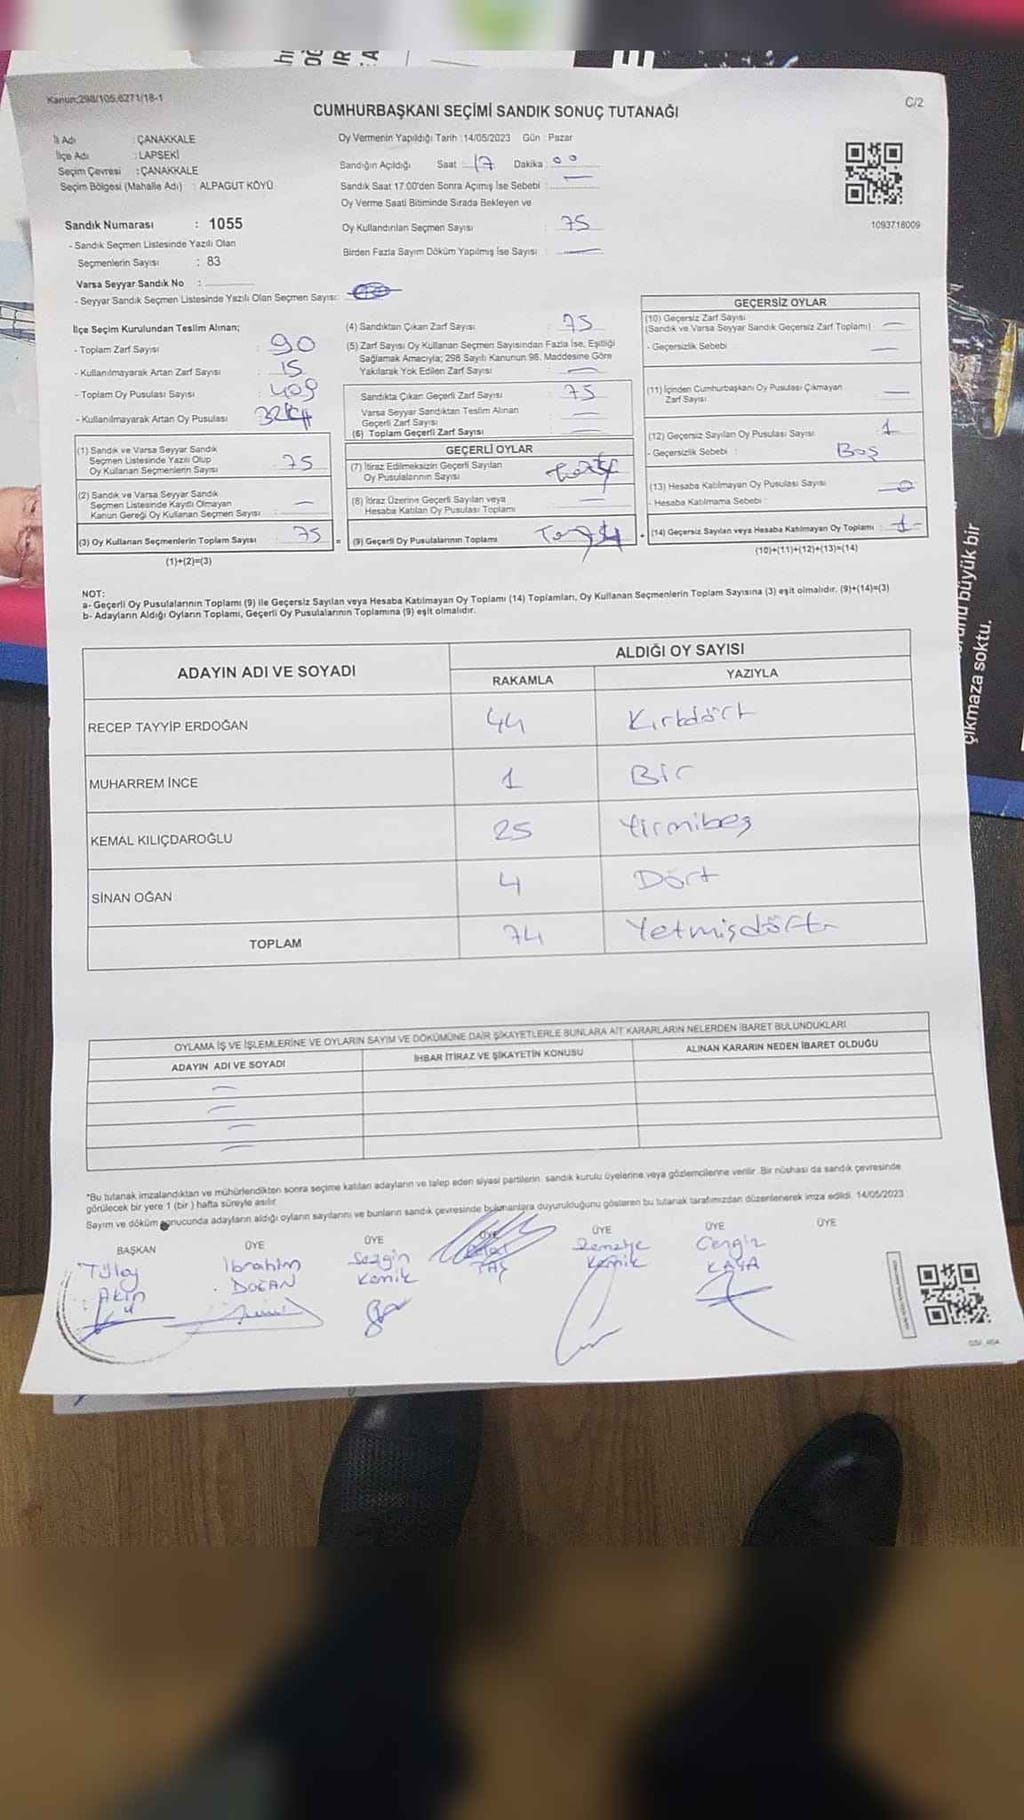 Kanun;298/105;6271/18-1
C/2
CUMHURBAŞKANI SEÇİMİ SANDIK SONUÇ TUTANAĞI
İl Adı : ÇANAKKALE
İlçe Adı : LAPSEKİ
Seçim Çevresi : ÇANAKKALE
Seçim Bölgesi (Mahalle Adı) : ALPAGUT KÖYÜ
Oy Vermenin Yapıldığı Tarih :14/05/2023 Gün : Pazar
Sandığın Açıldığı Saat : 17 Dakika : 00
Sandık Saat 17.00'den Sonra Açımış İse Sebebi : —
Oy Verme Saati Bitiminde Sırada Bekleyen ve
Oy Kullandırılan Seçmen Sayısı : 75
Birden Fazla Sayım Döküm Yapılmış İse Sayısı : —
1093718009
Sandık Numarası : 1055
- Sandık Seçmen Listesinde Yazılı Olan
Seçmenlerin Sayısı : 83
Varsa Seyyar Sandık No :
- Seyyar Sandık Seçmen Listesinde Yazılı Olan Seçmen Sayısı:
İlçe Seçim Kurulundan Teslim Alınan;
- Toplam Zarf Sayısı : 90
- Kullanılmayarak Artan Zarf Sayısı : 15
- Toplam Oy Pusulası Sayısı :
- Kullanılmayarak Artan Oy Pusulası :
(1) Sandık ve Varsa Seyyar Sandık
Seçmen Listesinde Yazılı Olup
Oy Kullanan Seçmenlerin Sayısı : 75
(2) Sandık ve Varsa Seyyar Sandık
Seçmen Listesinde Kayıtlı Olmayan
Kanun Gereği Oy Kullanan Seçmen Sayısı : —
(3) Oy Kullanan Seçmenlerin Toplam Sayısı : 75 =
(1)+(2)=(3)
(4) Sandıktan Çıkan Zarf Sayısı : 75
(5) Zarf Sayısı Oy Kullanan Seçmen Sayısından Fazla İse, Eşitliği
Sağlamak Amacıyla; 298 Sayılı Kanunun 98. Maddesine Göre
Yakılarak Yok Edilen Zarf Sayısı : —
Sandıkta Çıkan Geçerli Zarf Sayısı : 75
Varsa Seyyar Sandıktan Teslim Alınan
Geçerli Zarf Sayısı : —
(6) Toplam Geçerli Zarf Sayısı : —
GEÇERLİ OYLAR
(7) İtiraz Edilmeksizin Geçerli Sayılan
Oy Pusulalarının Sayısı
(8) İtiraz Üzerine Geçerli Sayılan veya
Hesaba Katılan Oy Pusulası Toplamı : —
(9) Geçerli Oy Pusulalarının Toplamı
GEÇERSİZ OYLAR
(10) Geçersiz Zarf Sayısı
(Sandık ve Varsa Seyyar Sandık Geçersiz Zarf Toplamı) : —
- Geçersizlik Sebebi : —
(11) İçinden Cumhurbaşkanı Oy Pusulası Çıkmayan
Zarf Sayısı : —
(12) Geçersiz Sayılan Oy Pusulası Sayısı : 1
- Geçersizlik Sebebi : Boş
(13) Hesaba Katılmayan Oy Pusulası Sayısı : 0
- Hesaba Katılmama Sebebi :
(14) Geçersiz Sayılan veya Hesaba Katılmayan Oy Toplamı : 1
(10)+(11)+(12)+(13)=(14)
NOT:
a- Geçerli Oy Pusulalarının Toplamı (9) ile Geçersiz Sayılan veya Hesaba Katılmayan Oy Toplamı (14) Toplamları, Oy Kullanan Seçmenlerin Toplam Sayısına (3) eşit olmalıdır. (9)+(14)=(3)
b- Adayların Aldığı Oyların Toplamı, Geçerli Oy Pusulalarının Toplamına (9) eşit olmalıdır.
ADAYIN ADI VE SOYADI ALDIĞI OY SAYISI
RAKAMLA YAZIYLA
RECEP TAYYİP ERDOĞAN 44 Kırkdört
MUHARREM İNCE 1 Bir
KEMAL KILIÇDAROĞLU 25 Yirmibeş
SİNAN OĞAN 4 Dört
TOPLAM 74 Yetmişdört
OYLAMA İŞ VE İŞLEMLERİNE VE OYLARIN SAYIM VE DÖKÜMÜNE DAİR ŞİKAYETLERLE BUNLARA AİT KARARLARIN NELERDEN İBARET BULUNDUKLARI
ADAYIN ADI VE SOYADI İHBAR İTİRAZ VE ŞİKAYETİN KONUSU ALINAN KARARIN NEDEN İBARET OLDUĞU
*Bu tutanak imzalandıktan ve mühürlendikten sonra seçime katılan adayların ve talep eden siyasi partilerin sandık kurulu üyelerine veya gözlemcilerine verilir. Bir nüshası da sandık çevresinde
görülecek bir yere 1 (bir ) hafta süreyle asılır.
Sayım ve döküm sonucunda adayların aldığı oyların sayılarını ve bunların sandık çevresinde bulunanlara duyurulduğunu gösteren bu tutanak tarafımızdan düzenlenerek imza edildi. 14/05/2023
BAŞKAN ÜYE ÜYE ÜYE ÜYE ÜYE ÜYE
Tülay Akın
İbrahim DOĞAN
Sezgin Kemik
TAŞ
Kemik
Cengiz KAYA
büyük bir
çıkmaza soktu.